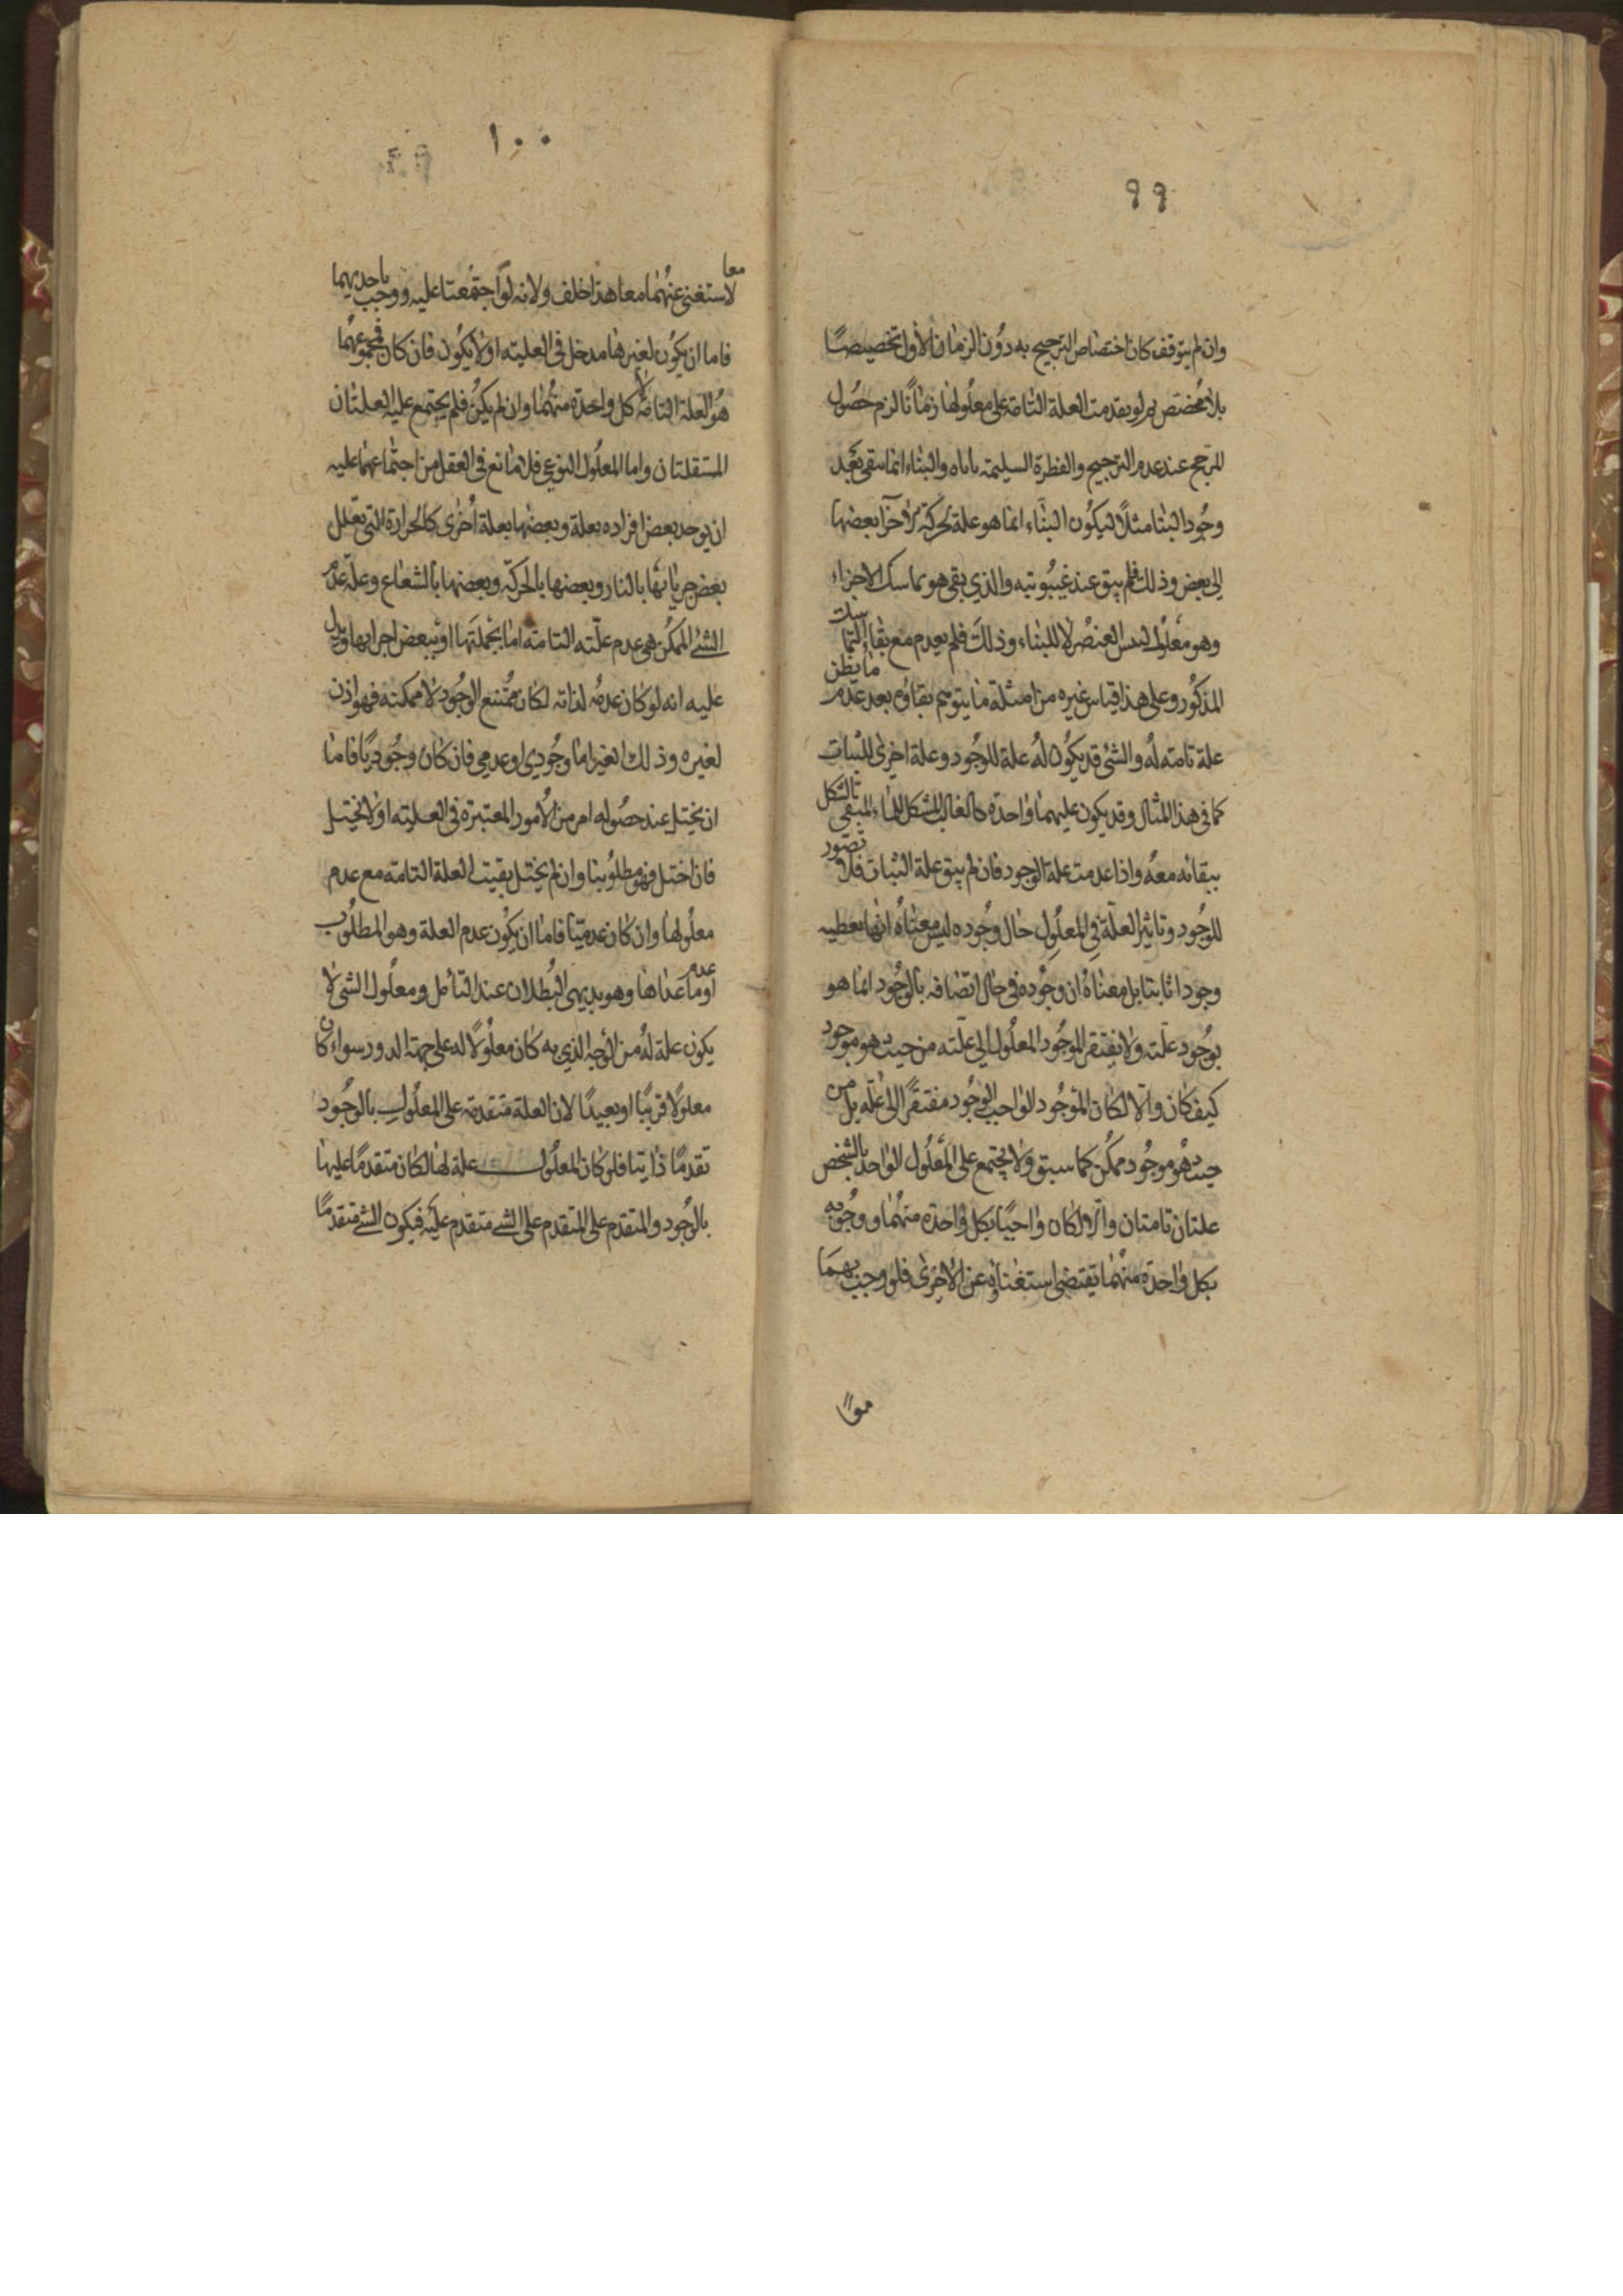 ٩٩
وان لم يتوقف كان اختصاص الترجيح به دون الزمان الأول تخصيصًا
بلا مخصص ولو تقدمت العلة التامة على معلولها زمانًا لزم حصول
المرجح عند عدم الترجيح والفطرة السليمة تاباه والبناء انما بقى بعد
وجود البنا مثلًا ليكون البناء انما هو علة لحركة الاجزا بعضها
الى بعض وذلك فلم يبق عند غيبوبته والذي بقى هو تماسك الاجزاء
وهو معلول ليبس العنصر لا للبناء وذلك فلم يعدم مع بقا التماسك
المذكور وعلى هذا قياس غيره من امثلة ما يتوهم بقاؤه بعد عدم ما يظن
علة تامة له والشئ قد يكون له علة للوجود وعلة اخرى للثبات
كما في هذا المثال وقد يكون عليهما واحدة كالقالب المشكل للماء المبقي بالشكل
ببقائه معه واذا عدمت علة الوجود فان لم يبق علة الثبات فلا تصور
للوجود وتاثير العلة في المعلول حال وجوده ليس معناه انها تعطيه
وجودا ثابتا بل معناه ان وجوده في حال اتصافه بالوجود انما هو
بوجود علته ولا يفتقر الموجود المعلول الى علته من حيث هو موجود
كيف كان والا لكان الموجود الواجب الوجود مفتقرًا الى علة بل من
حيث هو موجود ممكن كما سبق ولا يجتمع على المعلول الواحد بالشخص
علتان تامتان والا لكان واجبًا بكل واحدة منهما ووجوبه
بكل واحدة منهما تقتضي استغناؤه عن الاخرى فلو وجب بهما
١٠٠
معا
لاستغنى عنهما معا هذا خلف ولانه لو اجتمعتا عليه ووجب باحديهما
فاما ان يكون لغيرها مدخل في العلية او لا يكون فان كان فمجموعهما
هو العلة التامة لا كل واحدة منهما وان لم يكن فلم يجتمع عليه العلتان
المستقلتان واما المعلول النوعي فلا مانع في العقل من اجتماعهما عليه
ان يوجد بعض افراده بعلة وبعضها بعلة اخرى كالحرارة التي تعلل
بعض جزياتها بالنار وبعضها بالحركة وبعضها بالشعاع وعلة عدم
الشئ الممكن هي عدم علته التامة اما بجملتها او ببعض اجزايها ويدل
عليه انه لو كان عدمه لذاته لكان ممتنع الوجود لا ممكنه فهو اذن
لغيره وذلك الغير اما وجودي او عدمي فان كان وجوديًا فاما
ان يختل عند حصوله امر من الامور المعتبرة في العلية او لا يختل
فان اختل فهو مطلوبنا وان لم يختل بقيت العلة التامة مع عدم
معلولها وان كان عدميًا فاما ان يكون عدم العلة وهو المطلوب
او عدم ما عداها وهو بديهي البطلان عند التأمل ومعلول الشئ لا
يكون علة له من الوجه الذي به كان معلولًا له على جهة الدور سواء كان
معلولًا قريبًا او بعيدًا لان العلة متقدمة على المعلول بالوجود
تقدمًا ذاتيا فلو كان المعلول علة لها لكان متقدمًا عليها
بالوجود والمتقدم على المتقدم على الشئ متقدم عليه فيكون الشئ متقدمًا